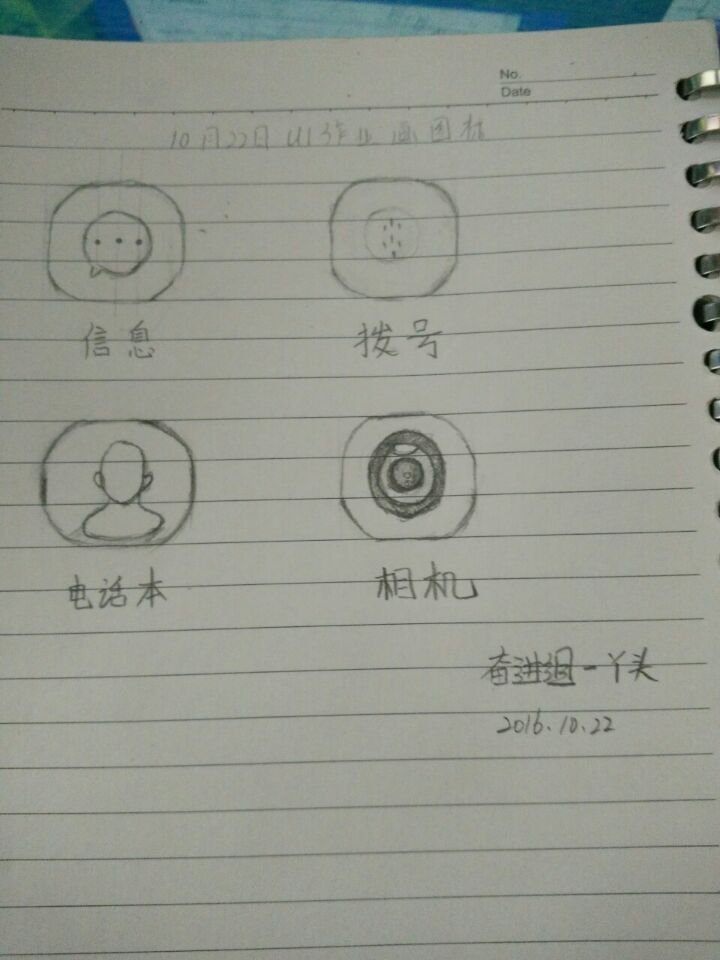 No.
Date
10月22日UI作业画图标
信息 拨号
电话本 相机
奋进组-丫头
2016.10.22